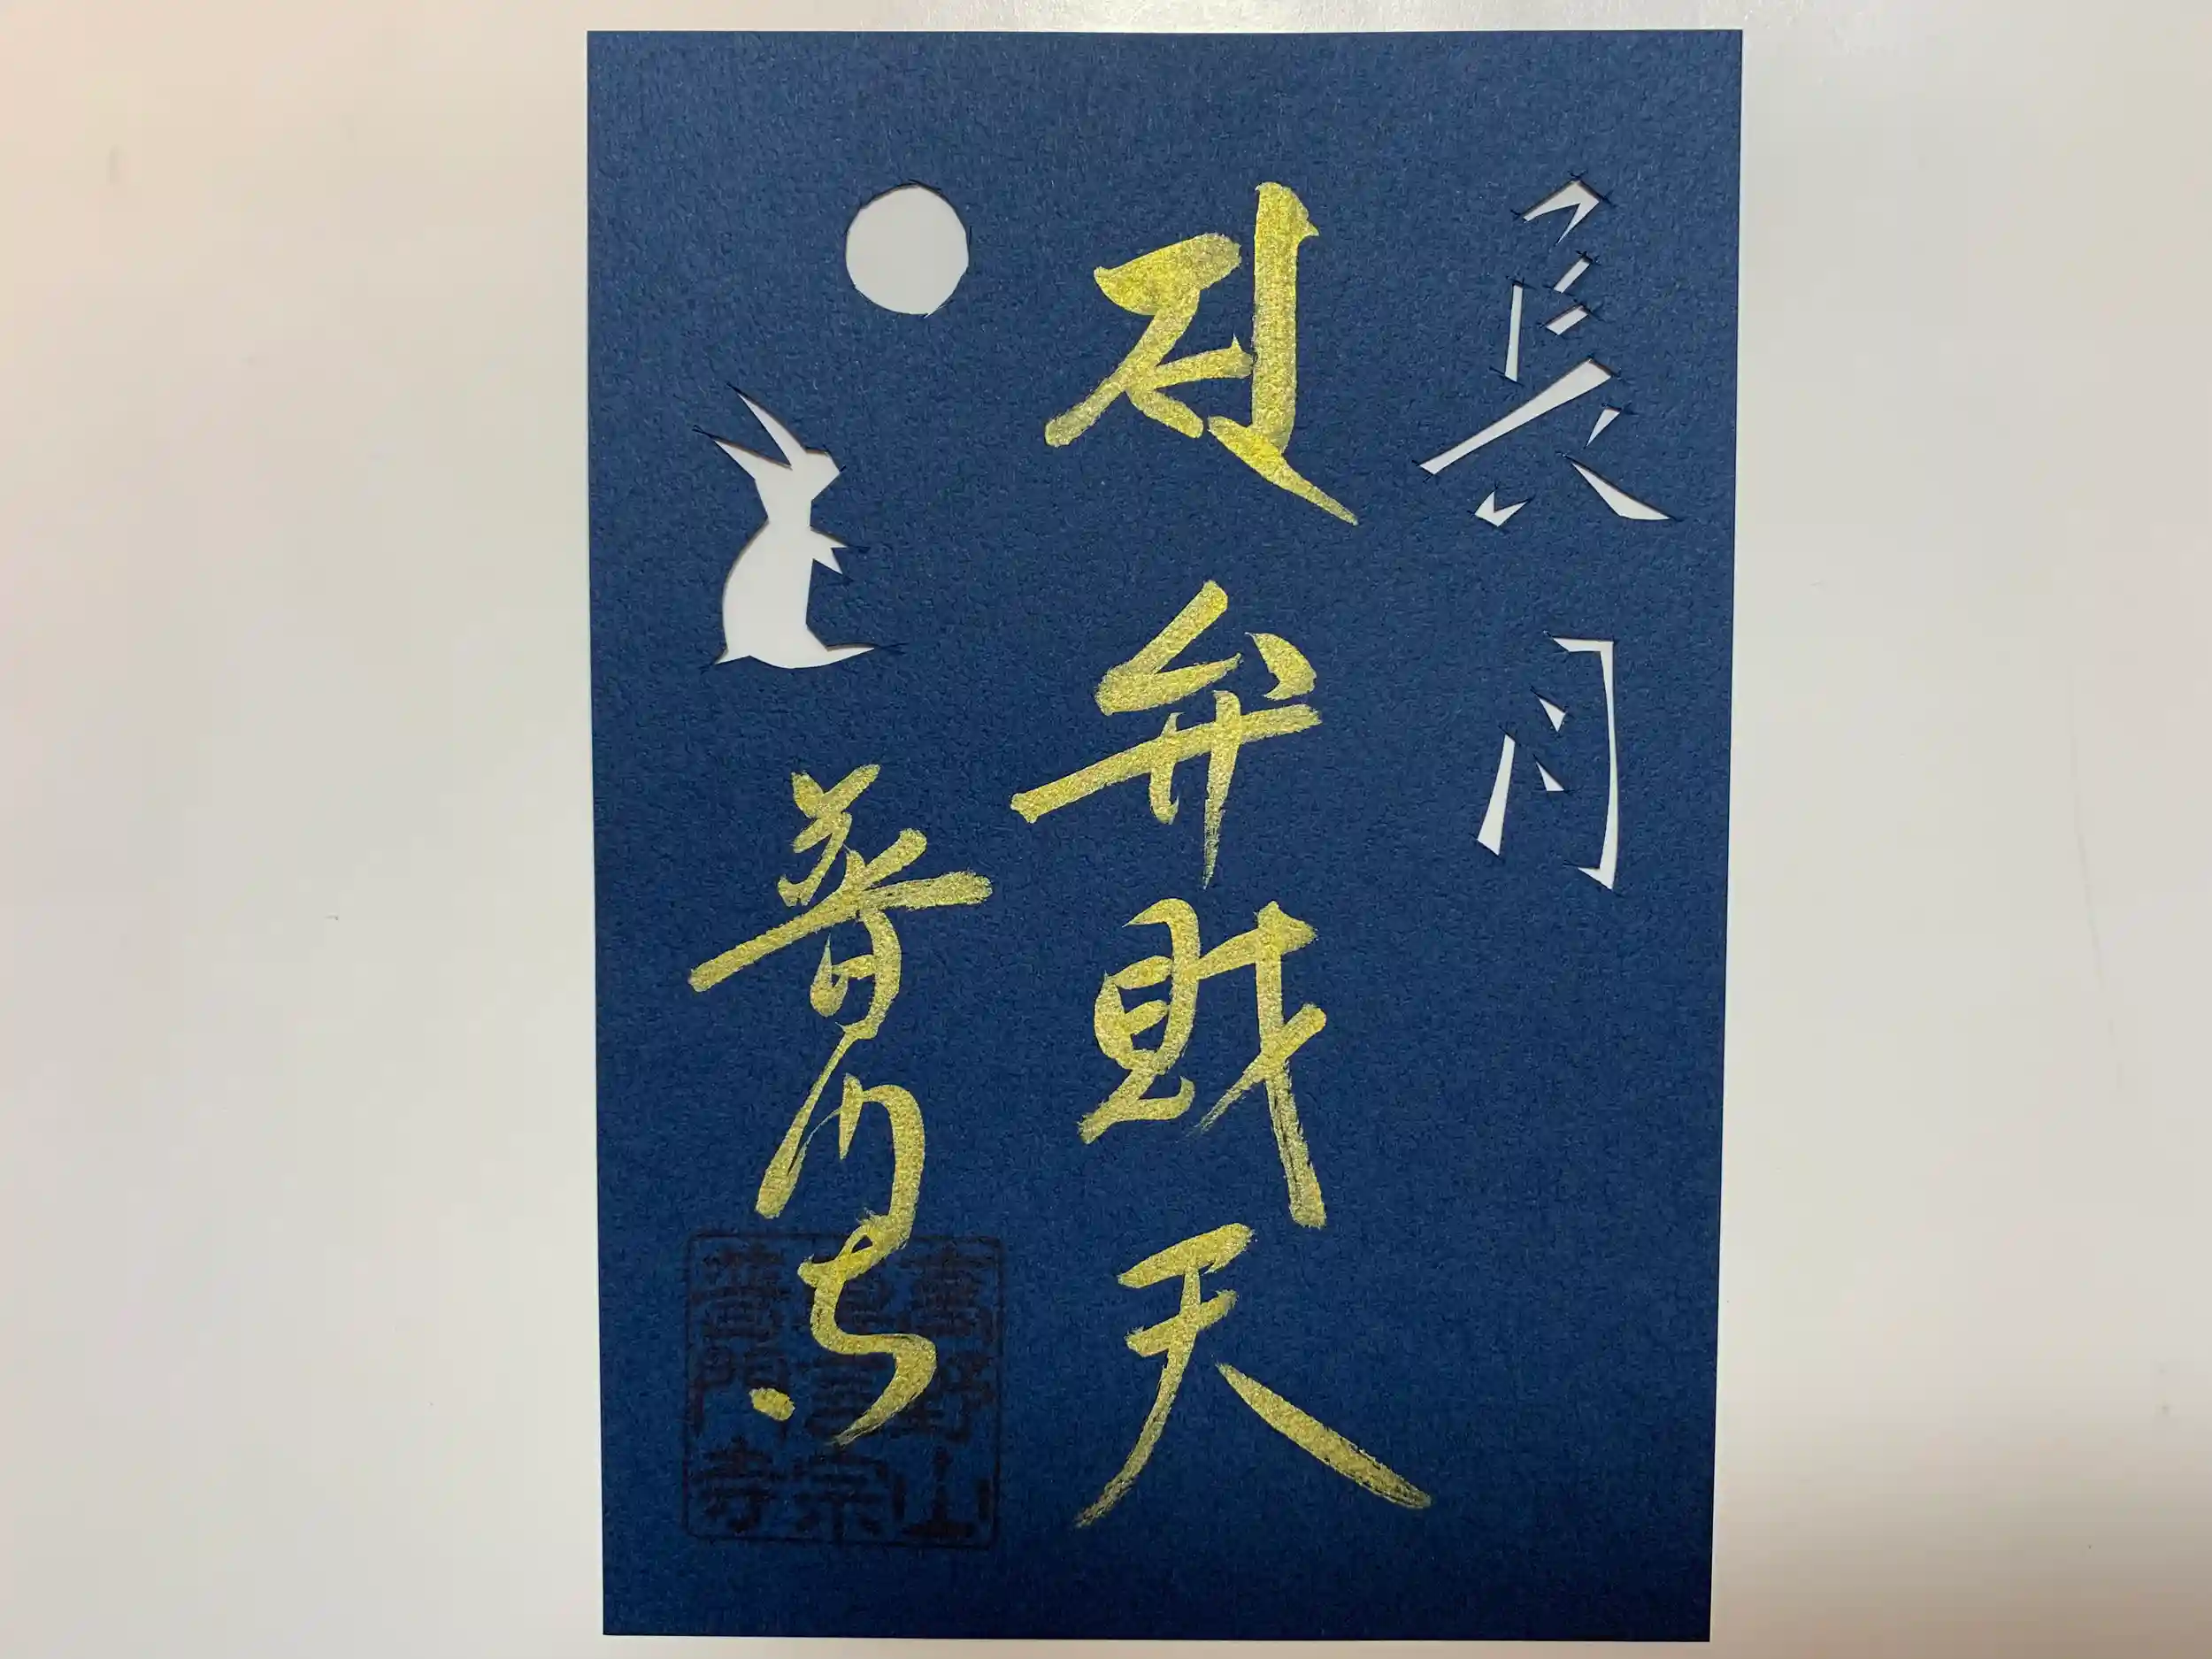 長月
𑖭𑖲弁財天
普門寺
高野山
真言宗
普門寺